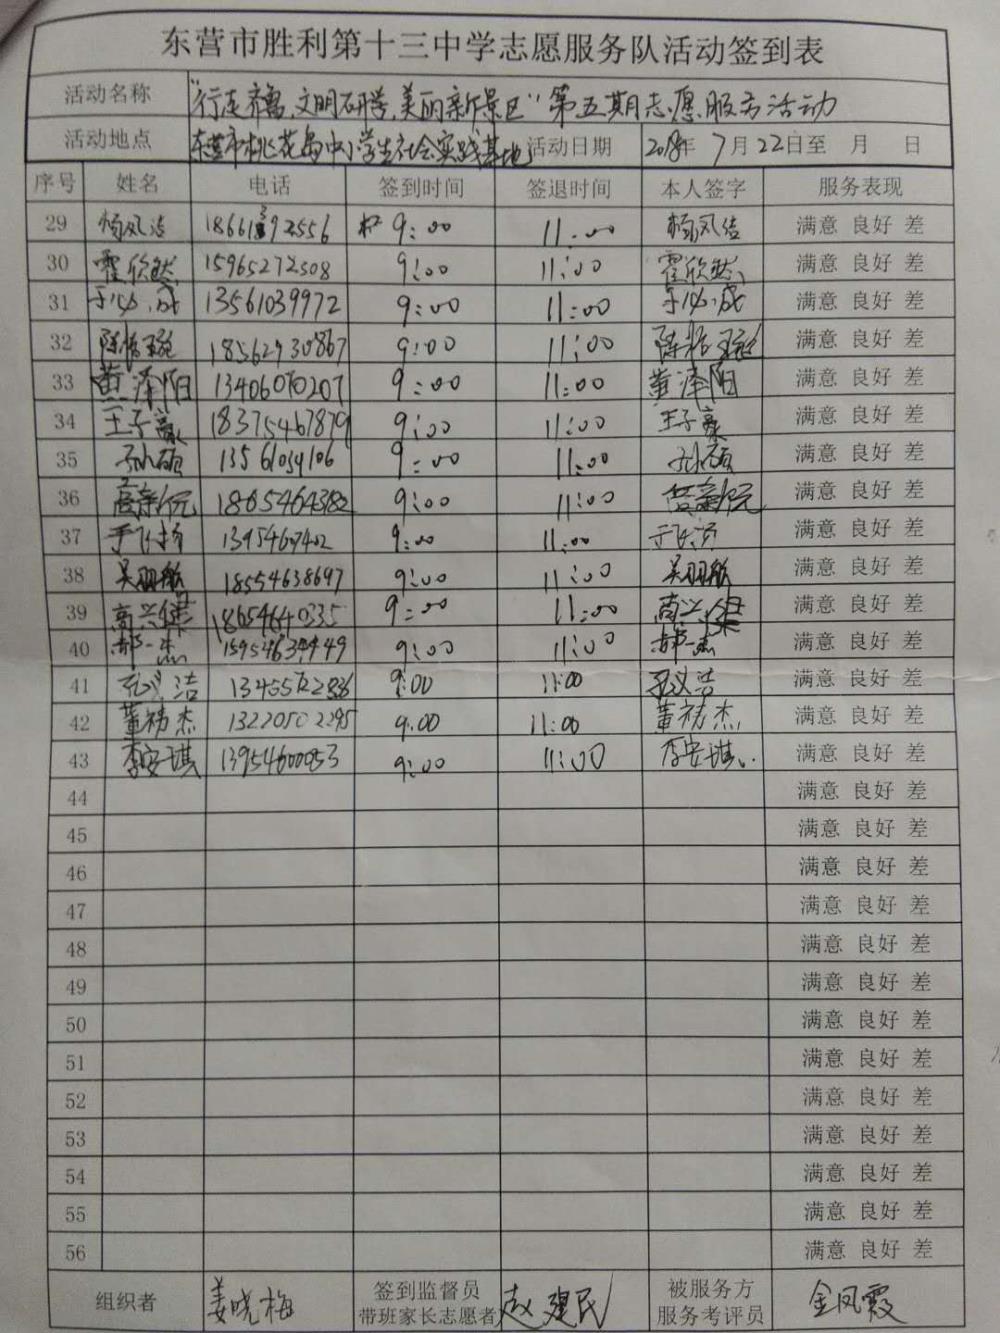 东营市胜利第十三中学志愿服务队活动签到表
活动名称 "行走齐鲁,文明研学,美丽新景区"第五期志愿服务活动
活动地点 东营市桃花岛中小学生社会实践基地 活动日期 2018年 7月22日至 月 日
序号 姓名 电话 签到时间 签退时间 本人签字 服务表现
29 杨风洁 9:00 11:00 杨风洁 满意 良好 差
30 霍欣然 15965272508 9:00 11:00 霍欣然 满意 良好 差
31 13561039972 9:00 11:00 满意 良好 差
32 18562930867 9:00 11:00 满意 良好 差
33 黄泽阳 13406070207 9:00 11:00 黄泽阳 满意 良好 差
34 王子豪 18375467879 9:00 11:00 王子豪 满意 良好 差
35 孙硕 9:00 11:00 孙硕 满意 良好 差
36 9:00 11:00 满意 良好 差
37 于飞扬 9:00 11:00 于飞扬 满意 良好 差
38 吴羽航 18554638697 9:00 11:00 吴羽航 满意 良好 差
39 高兴健 18654640335 9:00 11:00 高兴健 满意 良好 差
40 郝一杰 9:00 11:00 郝一杰 满意 良好 差
41 9:00 11:00 满意 良好 差
42 董祎杰 13220502295 9:00 11:00 董祎杰 满意 良好 差
43 李安琪 13954600053 9:00 11:00 李安琪 满意 良好 差
44 满意 良好 差
45 满意 良好 差
46 满意 良好 差
47 满意 良好 差
48 满意 良好 差
49 满意 良好 差
50 满意 良好 差
51 满意 良好 差
52 满意 良好 差
53 满意 良好 差
54 满意 良好 差
55 满意 良好 差
56 满意 良好 差
组织者 姜晓梅 签到监督员 赵建民 被服务方 金凤霞
带班家长志愿者 服务考评员